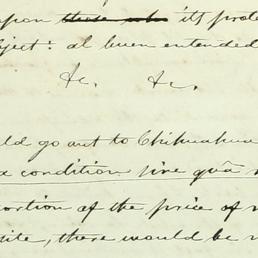 upon those who its prote
bject: al buen entended
&c. &c.
ld go out to Chihuahua
a condition sine quâ n
portion of the price of
site, there would be